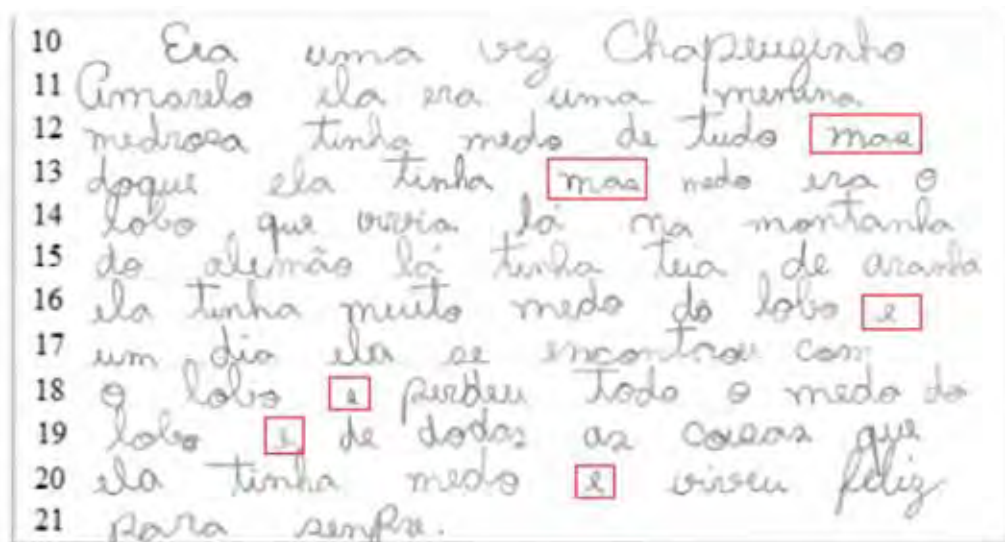 10 Era uma vez Chapeuzinho
11 Amarelo ela era uma menina
12 medrosa tinha medo de tudo mas
13 doque ela tinha mas medo era o
14 lobo que vivia lá na montanha
15 do alemão lá tinha teia de aranha
16 ela tinha muito medo do lobo e
17 um dia ela se encontrou com
18 o lobo e perdeu todo o medo do
19 lobo e de dodas as coisas que
20 ela tinha medo e viveu feliz
21 para senpre.